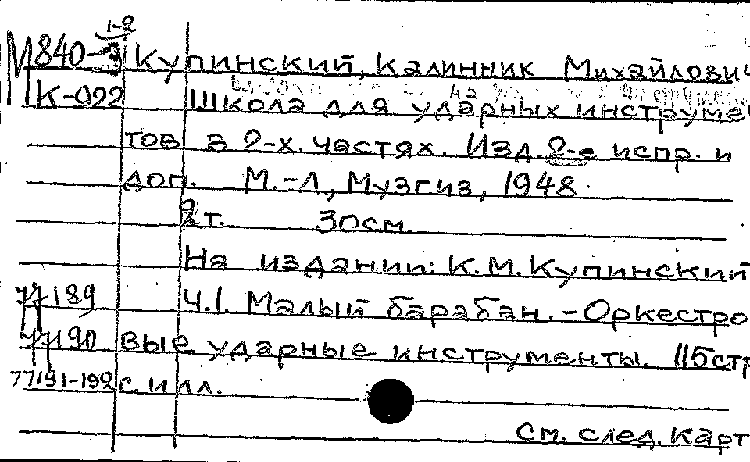 1-2
М840-3 Купинский, Калинник Михайлович
К-022 Школа для ударных инструмен
тов в 2-х. частях. Изд. 2-е испр. и
доп. М.-Л., Музгиз, 1948.
2т. 30см.
На издании: К.М. Купинский
77189 Ч.1. Малый барабан. - Оркестро
77190 вые ударные инструменты. 115стр
77191-192 с илл.
См. след. карт